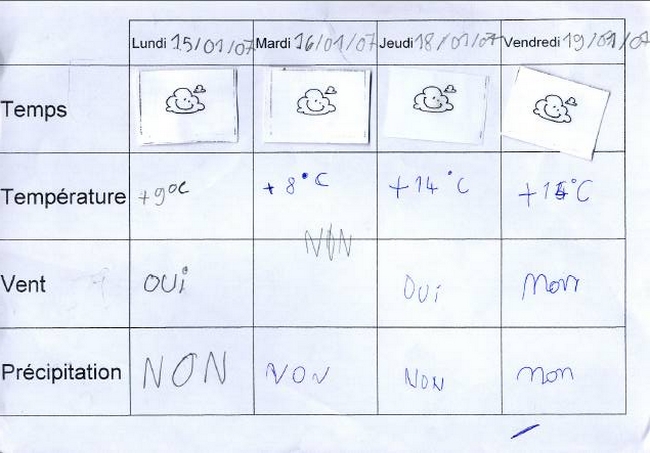 Lundi 15/01/07 Mardi 16/01/07 Jeudi 18/01/07 Vendredi 19/01/07
Temps
Température +9°C +8°C +14°C
NON
Vent OUi OUi Non
Précipitation NON NON NON non